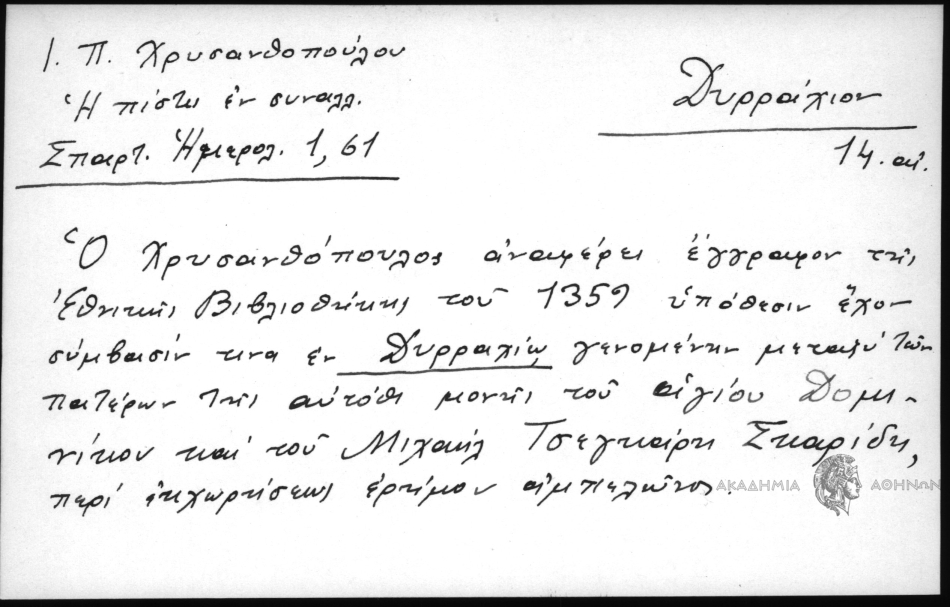 Ι. Π. Χρυσανθοπούλου
Ἡ πίστις ἐν συναλλ.
Σπαρτ. Ἡμερολ. 1, 61
Δυρράχιον
14. αἰ.
Ὁ Χρυσανθόπουλος ἀναφέρει ἔγγραφον τῆς
Ἐθνικῆς Βιβλιοθήκης τοῦ 1359 ὑπόθεσιν ἔχον
σύμβασίν τινα ἐν Δυρραχίῳ γενομένην μεταξὺ τῶν
πατέρων τῆς αὐτόθι μονῆς τοῦ ἁγίου Δομι-
νίκου καὶ τοῦ Μιχαὴλ Τσεγκάρη Σκαρίδη,
περὶ ἐκχωρήσεως ἐρήμου ἀμπελῶνος.
ΑΚΑΔΗΜΙΑ ΑΘΗΝΩΝ